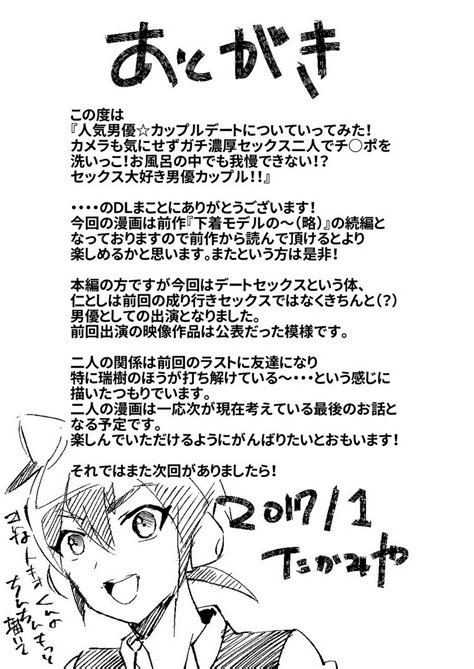 あとがき
この度は
『人気男優☆カップルデートについていってみた！
カメラも気にせずガチ濃厚セックス二人でチ○ポを
洗いっこ！お風呂の中でも我慢できない！？
セックス大好き男優カップル！！』
・・・・のDLまことにありがとうございます！
今回の漫画は前作『下着モデルの～（略）』の続編と
なっておりますので前作から読んで頂けるとより
楽しめるかと思います。またという方は是非！
本編の方ですが今回はデートセックスという体、
仁としは前回の成り行きセックスではなくきちんと（？）
男優としての出演となりました。
前回出演の映像作品は公表だった模様です。
二人の関係は前回のラストに友達になり
特に瑞樹のほうが打ち解けている～・・・という感じに
描いたつもりでいます。
二人の漫画は一応次が現在考えている最後のお話と
なる予定です。
楽しんでいただけるようにがんばりたいとおもいます！
それではまた次回がありましたら！
2017/1
たかみや
ちんちんもっと描いて